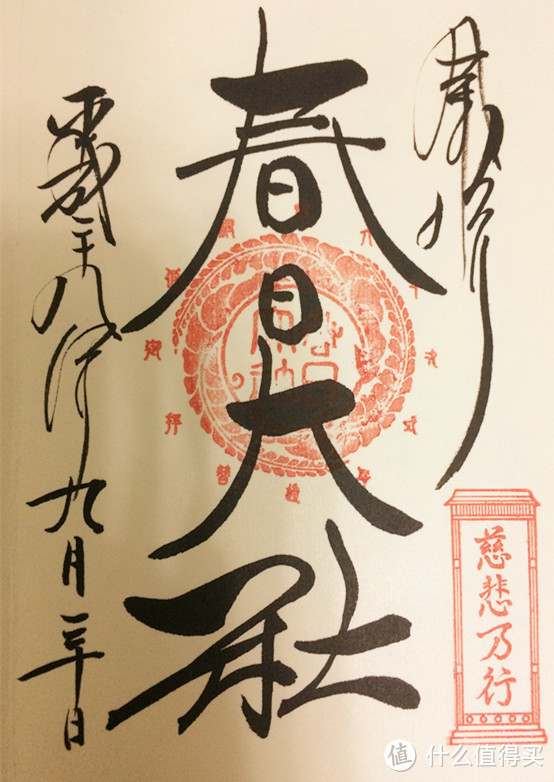 奉拝
春日大社
平成二十八年九月二十日
慈悲万行
值 什么值得买